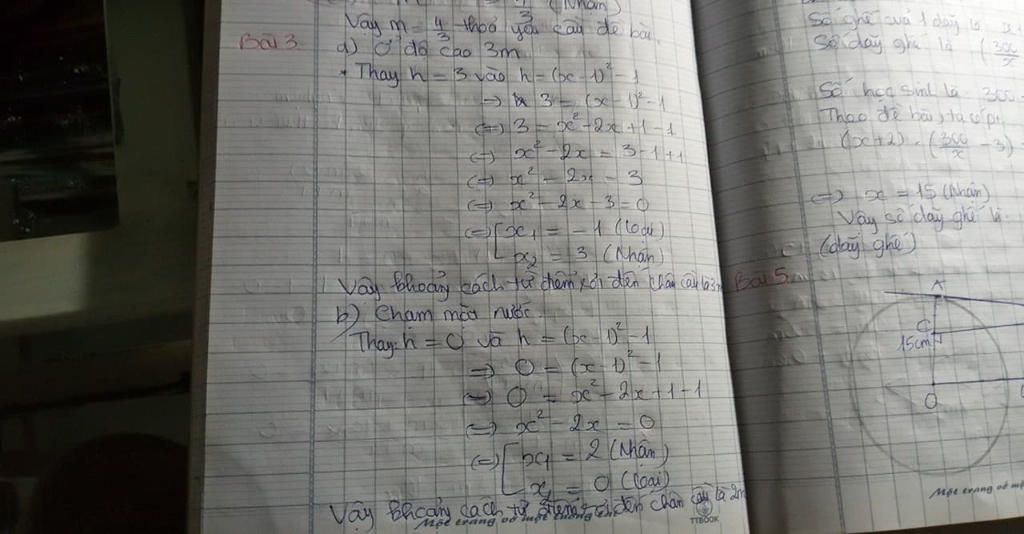 (Nhận)
Vậy m = 4/3 thoả yêu cầu đề bài.
Bài 3
a) Ở độ cao 3m
* Thay h = 3 vào h = (x - 1)² - 1
=> 3 = (x - 1)² - 1
(=) 3 = x² - 2x + 1 - 1
(=) x² - 2x = 3 - 1 + 1
(=) x² - 2x - 3
(=) x² - 2x - 3 = 0
(=) [ x₁ = -1 (loại)
x₂ = 3 (Nhận)
Vậy khoảng cách từ điểm rơi đến chân cầu là 3m
b) Chạm mặt nước.
Thay h = 0 và h = (x - 1)² - 1
=> 0 = (x - 1)² - 1
(=) 0 = x² - 2x + 1 - 1
(=) x² - 2x = 0
(=) [ x₁ = 2 (Nhận)
x = 0 (loại)
Vậy khoảng cách từ điểm rơi đến chân cầu là 2m
Một trang vở một
TTBOOK
Số ghế của 1 dãy là x +
Số dãy ghế là (300/x
Số học sinh là 300
Theo đề bài ta có pt
(x + 2) . (300/x - 3)
(=) x = 15 (Nhận)
Vậy số dãy ghế là
(dãy ghế)
Bài 5
A
C
15cm
O
Một trang vở